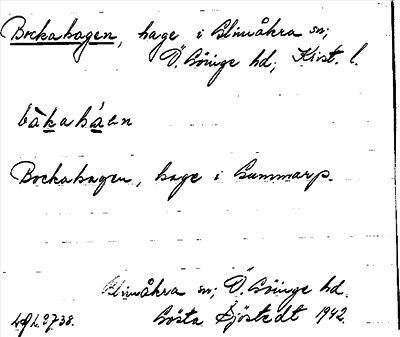 Bockahagen, hage i Glimåkra sn;
Ö. Göinge hd, Krist. l.
bòkahá̱en
Bockahagen, hage i Gummarp.
Glimåkra sn; Ö. Göinge hd.
Gösta Sjöstedt 1942.